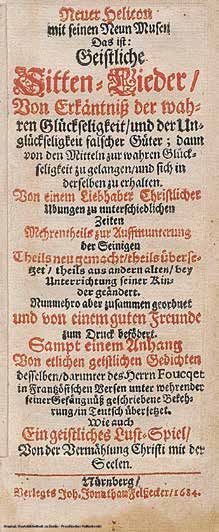 Neuer Helicon
mit seinen Neun Musen
Das ist:
Geistliche
Sitten-Lieder/
Von Erkäntniß der wah-
ren Glückseligkeit/ und der Un-
glückseligkeit falscher Güter; dann
von den Mitteln zur wahren Glück-
seligkeit zu gelangen/ und sich in
derselben zu erhalten.
Von einem Liebhaber Christlicher
Ubungen zu unterschiedlichen
Zeiten
Mehrentheils zur Auffmunterung
der Seinigen
Theils neu gemacht/ theils überse-
tzet/ theils aus andern alten/ bey
Unterrichtung seiner Kin-
der geändert.
Nunmehro aber zusammen geordnet
und von einem guten Freunde
zum Druck befödert.
Sampt einem Anhang
Von etlichen geistlichen Gedichten
desselben/ darunter des Herrn Foucqet
in Frantzösischen Versen unter wehrender
seiner Gefängnüß geschriebene Bekeh-
rung/ in Teutsch übersetzet.
Wie auch
Ein geistliches Lust-Spiel/
Von der Vermählung Christi mit der
Seelen.
Nürnberg/
Verlegts Joh. Jonathan Felßecker/ 1684.